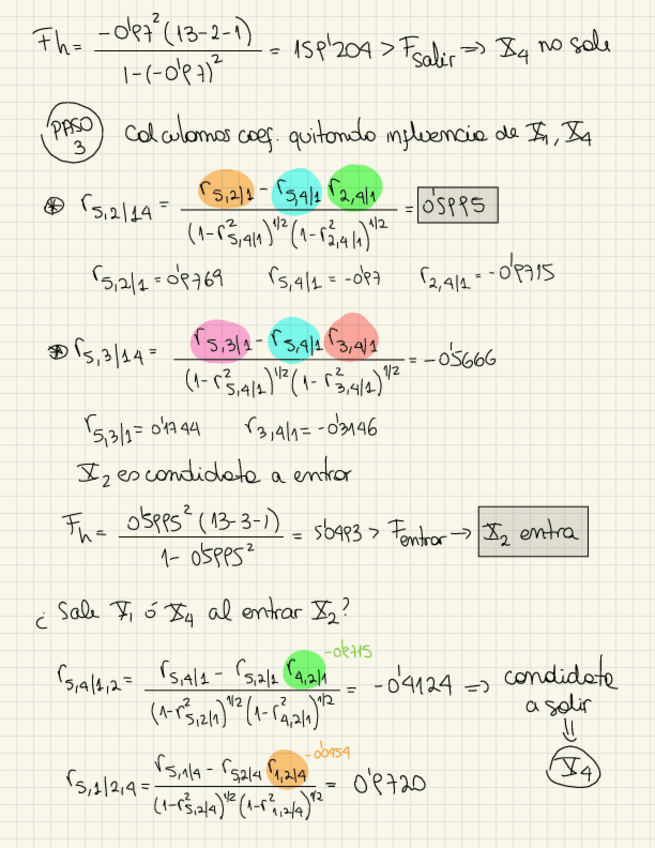 Fh = \frac{-0'97^2 (13-2-1)}{1-(-0'97)^2} = 159'204 > F_{salir} => X_4 no sale
PASO 3 Calculamos coef. quitando influencia de X_1, X_4
* r_{5,2/14} = \frac{r_{5,2/1} - r_{5,4/1} r_{2,4/1}}{(1-r^2_{5,4/1})^{1/2} (1-r^2_{2,4/1})^{1/2}} = 0'5995
r_{5,2/1} = 0'9769 r_{5,4/1} = -0'97 r_{2,4/1} = -0'9715
* r_{5,3/14} = \frac{r_{5,3/1} - r_{5,4/1} r_{3,4/1}}{(1-r^2_{5,4/1})^{1/2} (1-r^2_{3,4/1})^{1/2}} = -0'5666
r_{5,3/1} = 0'1744 r_{3,4/1} = -0'3146
X_2 es candidata a entrar
F_h = \frac{0'5995^2 (13-3-1)}{1-0'5995^2} = 5'0493 > F_{entrar} → X_2 entra
¿Sale X_1 ó X_4 al entrar X_2?
r_{5,4/1,2} = \frac{r_{5,4/1} - r_{5,2/1} r_{4,2/1}}{(1-r^2_{5,2/1})^{1/2} (1-r^2_{4,2/1})^{1/2}} = -0'4124 => candidata a salir ⇓ X_4
-0'9715
r_{5,1/2,4} = \frac{r_{5,1/4} - r_{5,2/4} r_{1,2/4}}{(1-r^2_{5,2/4})^{1/2} (1-r^2_{1,2/4})^{1/2}} = 0'9720
-0'0954